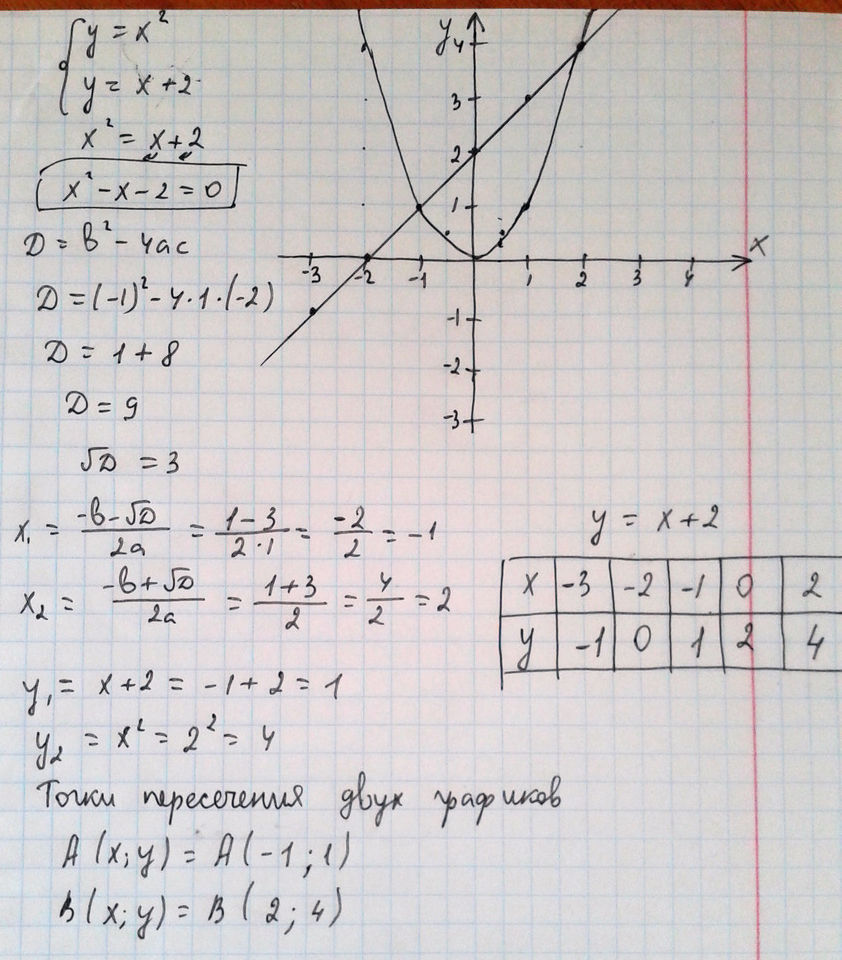 y = x²
y = x + 2
x² = x + 2
x² - x - 2 = 0
D = b² - 4ac
D = (-1)² - 4·1·(-2)
D = 1 + 8
D = 9
√D = 3
x₁ = (-b-√D)/(2a) = (1-3)/(2·1) = (-2)/2 = -1
x₂ = (-b+√D)/(2a) = (1+3)/2 = 4/2 = 2
y₁ = x+2 = -1+2 = 1
y₂ = x² = 2² = 4
Точки пересечения двух графиков
A(x;y) = A(-1;1)
B(x;y) = B(2;4)
y
4
3
2
1
-3 -2 -1 1 2 3 4 x
-1
-2
-3
y = x+2
x -3 -2 -1 0 2
y -1 0 1 2 4